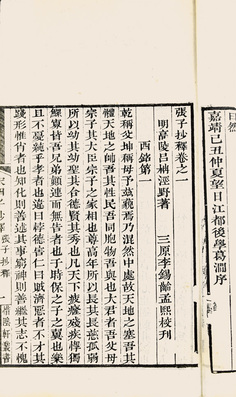 曰然
嘉靖己丑仲夏望日江都後學葛澗序
張子抄釋卷之一
明高陵呂柟涇野著　三原李錫齡孟熙校刊
西銘第一
乾稱父坤稱母予茲藐焉乃混然中處故天地之塞吾其
體天地之帥吾其性民吾同胞物吾與也大君者吾父母
宗子其大臣宗子之家相也尊高年所以長其長慈孤弱
所以幼其幼聖其合德賢其秀也凡天下疲癃殘疾惸獨
鰥寡皆吾兄弟顛連而無告者也于時保之子之翼也樂
且不憂純乎孝者也違曰悖德害仁曰賊濟惡者不才其
踐形惟肖者也知化則善述其事窮神則善繼其志不愧
宋四子抄釋　張子抄釋　一　惜陰軒叢書